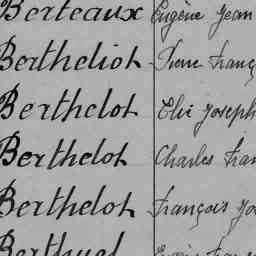 Berteaux Eugène Jean
Bertheliot Pierre Franç
Berthelot Elie Joseph
Berthelot Charles Fran
Berthelot François Jos
Berthuel